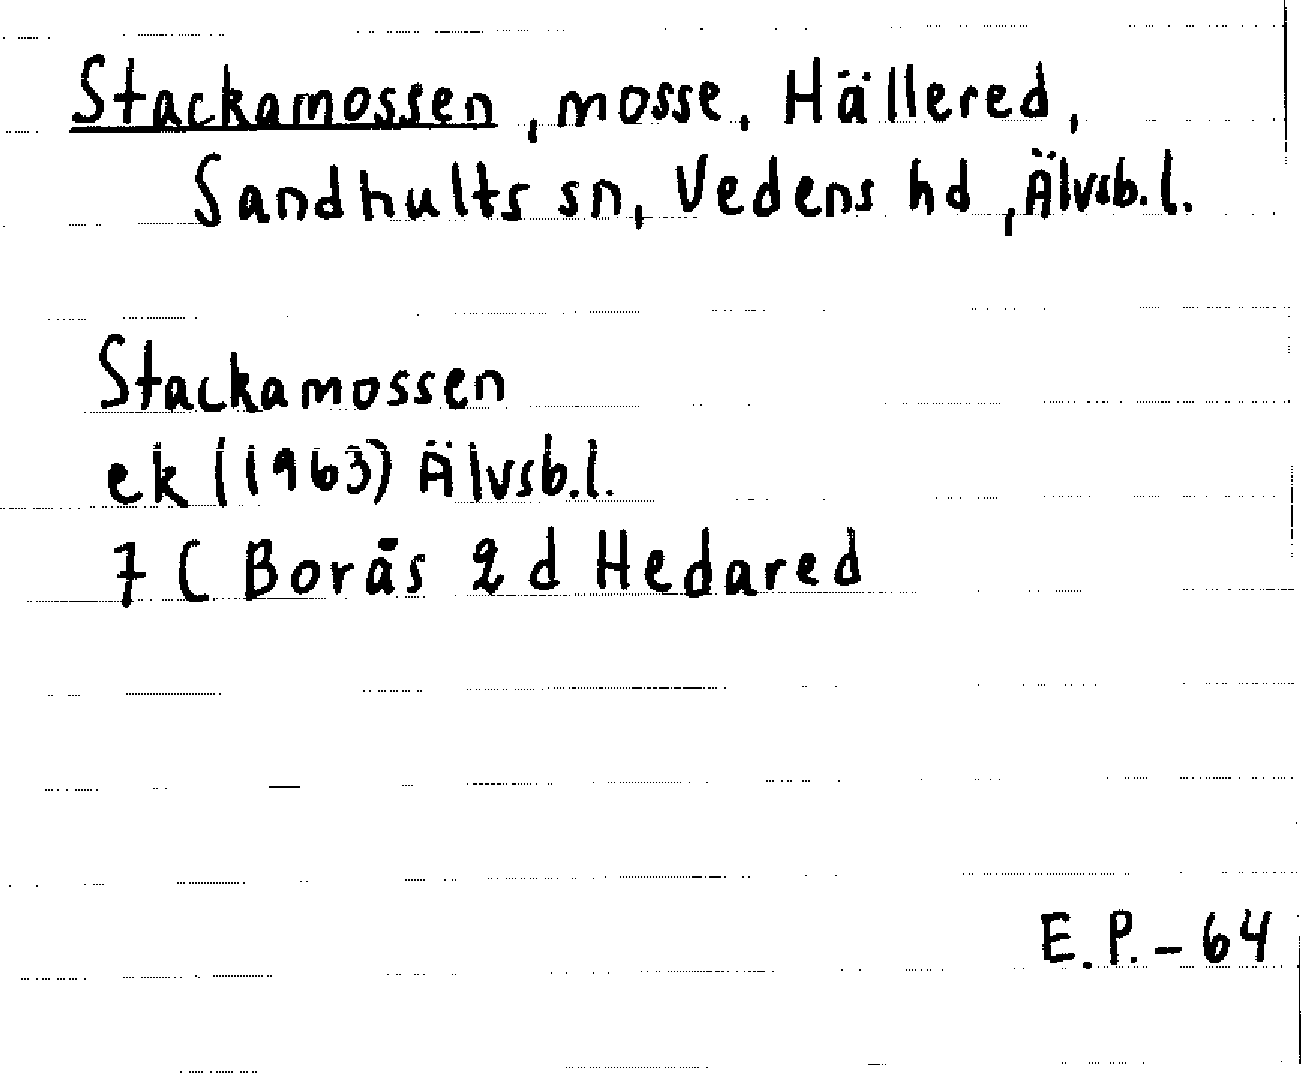 Stackamossen, mosse, Hällered,
Sandhults sn, Vedens hd, Älvsb.l.
Stackamossen
ek (1963) Älvsb.l.
7 C Borås 2 d Hedared
E.P. - 64